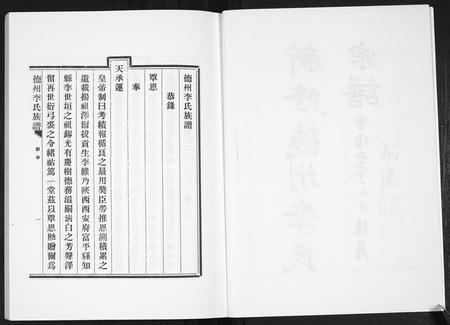 德州李氏族譜
恭錄
覃恩
奉
天承運
皇帝制曰考績報循良之最用奬臣勞推恩溯積累之
遺載揚祖澤爾拔貢生李維乃陝西西安府富平縣知
縣李世垣之祖錫光有慶樹德務滋嗣清白之芳聲澤
留再世衍弓裘之令緒祜篤一堂茲以覃恩貤贈爾爲
德州李氏族譜
一
宗譜
新修德州李氏